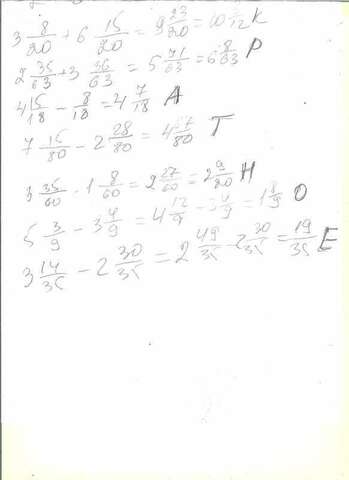 3 8/20 + 6 15/20 = 9 23/20 = 10 3/12 К
2 35/63 + 3 36/63 = 5 71/63 = 6 8/63 Р
4 15/18 - 8/18 = 4 7/18 А
7 15/80 - 2 28/80 = 4 Т
3 35/60 - 1 8/60 = 2 27/60 = 2 9/20 Н
5 3/9 - 3 4/9 = 4 12/9 - 3 4/9 = 1 8/9 О
3 14/35 - 2 30/35 = 2 49/35 - 2 30/35 = 19/35 Е